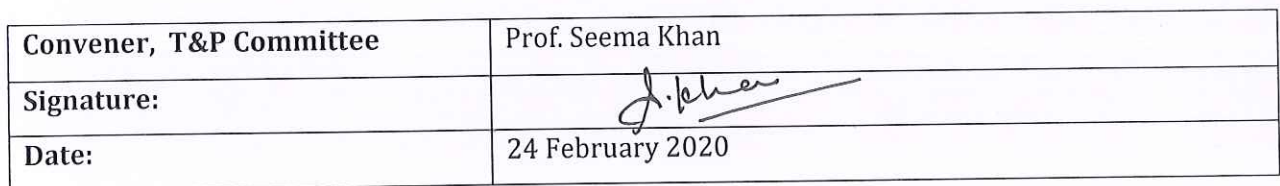 Convener, T&P Committee Prof. Seema Khan
Signature: S.Khan
Date: 24 February 2020